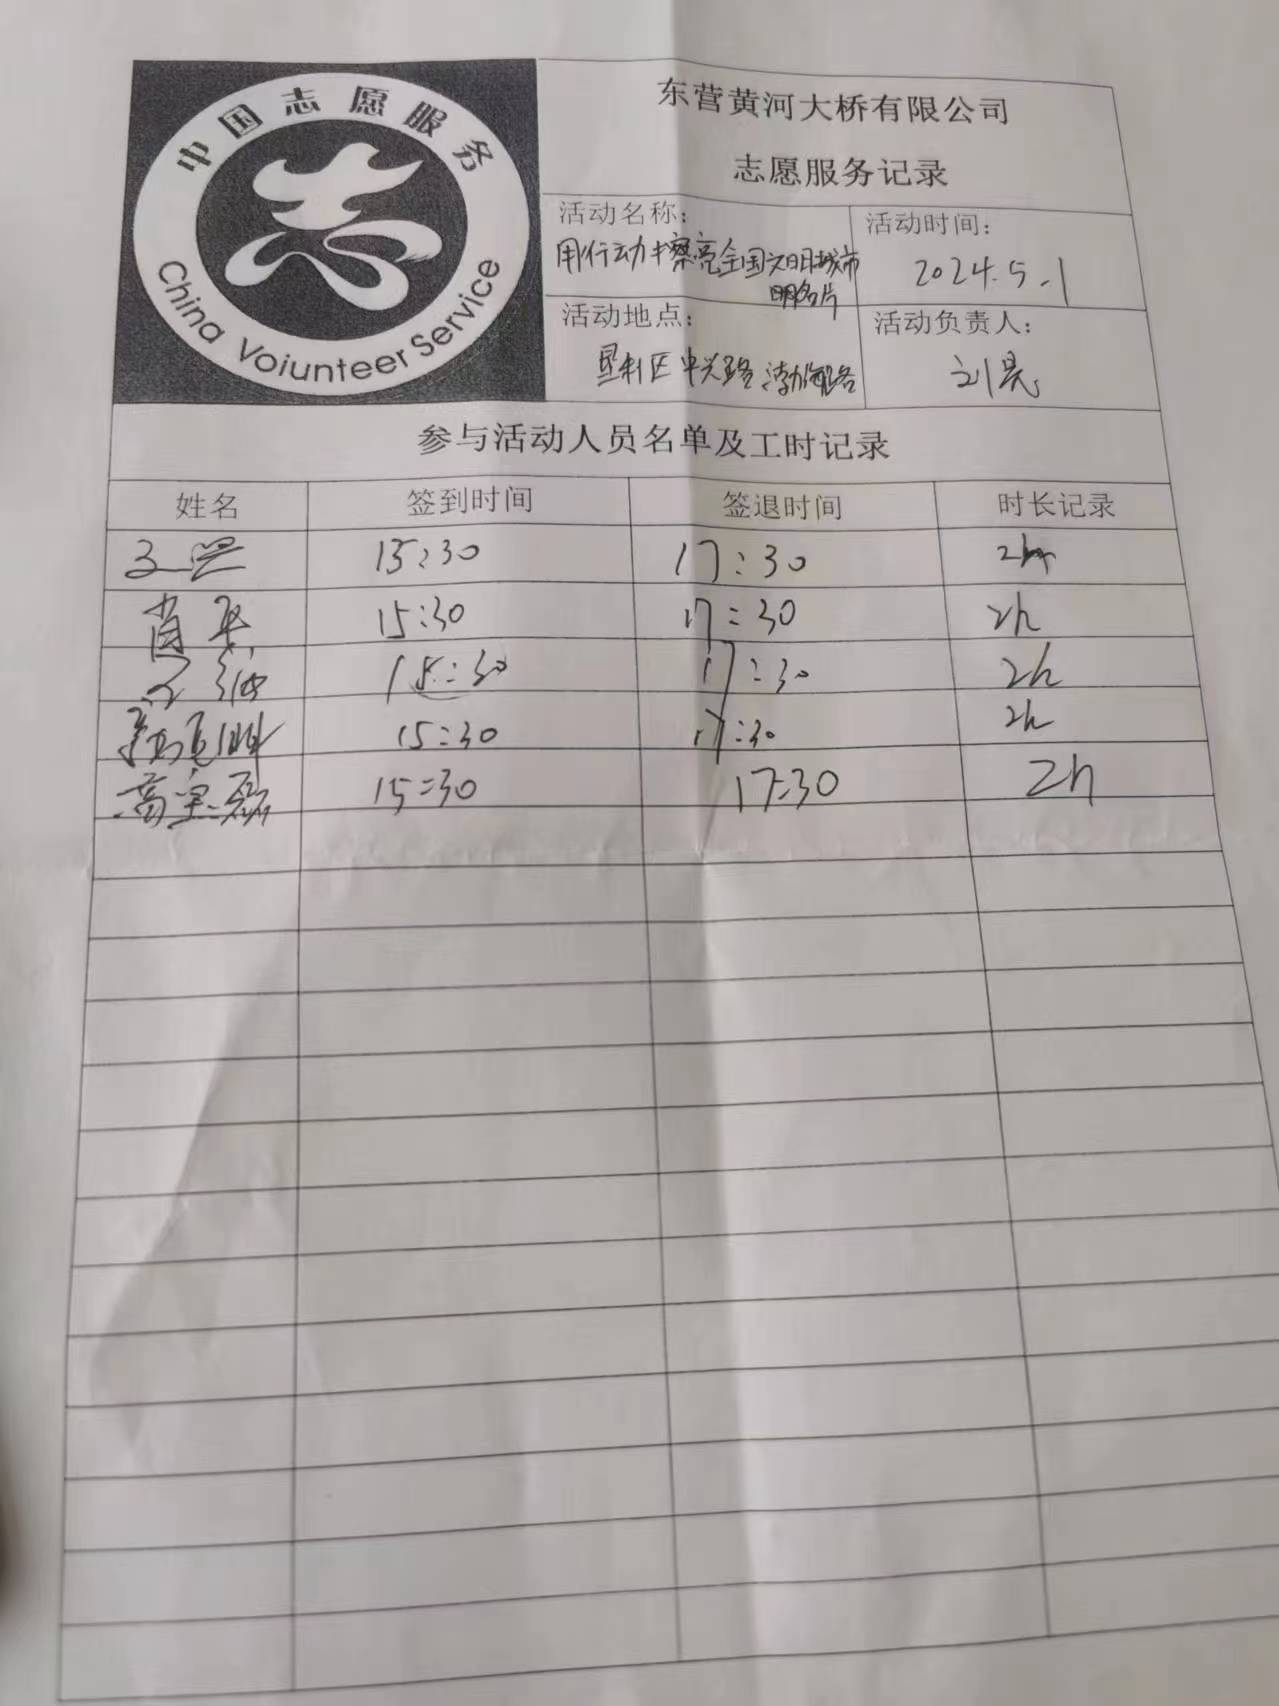 中国志愿服务
China Voiunteer Service
东营黄河大桥有限公司
志愿服务记录
活动名称：
用行动擦亮全国文明城市
明名片
活动时间：
2024.5.1
活动地点：
垦利区中兴路渤海路
活动负责人：
刘晃
参与活动人员名单及工时记录
姓名 签到时间 签退时间 时长记录
15:30 17:30 2h
肖 15:30 17:30 2h
15:30 17:30 2h
15:30 17:30 2h
高宝磊 15:30 17:30 2h